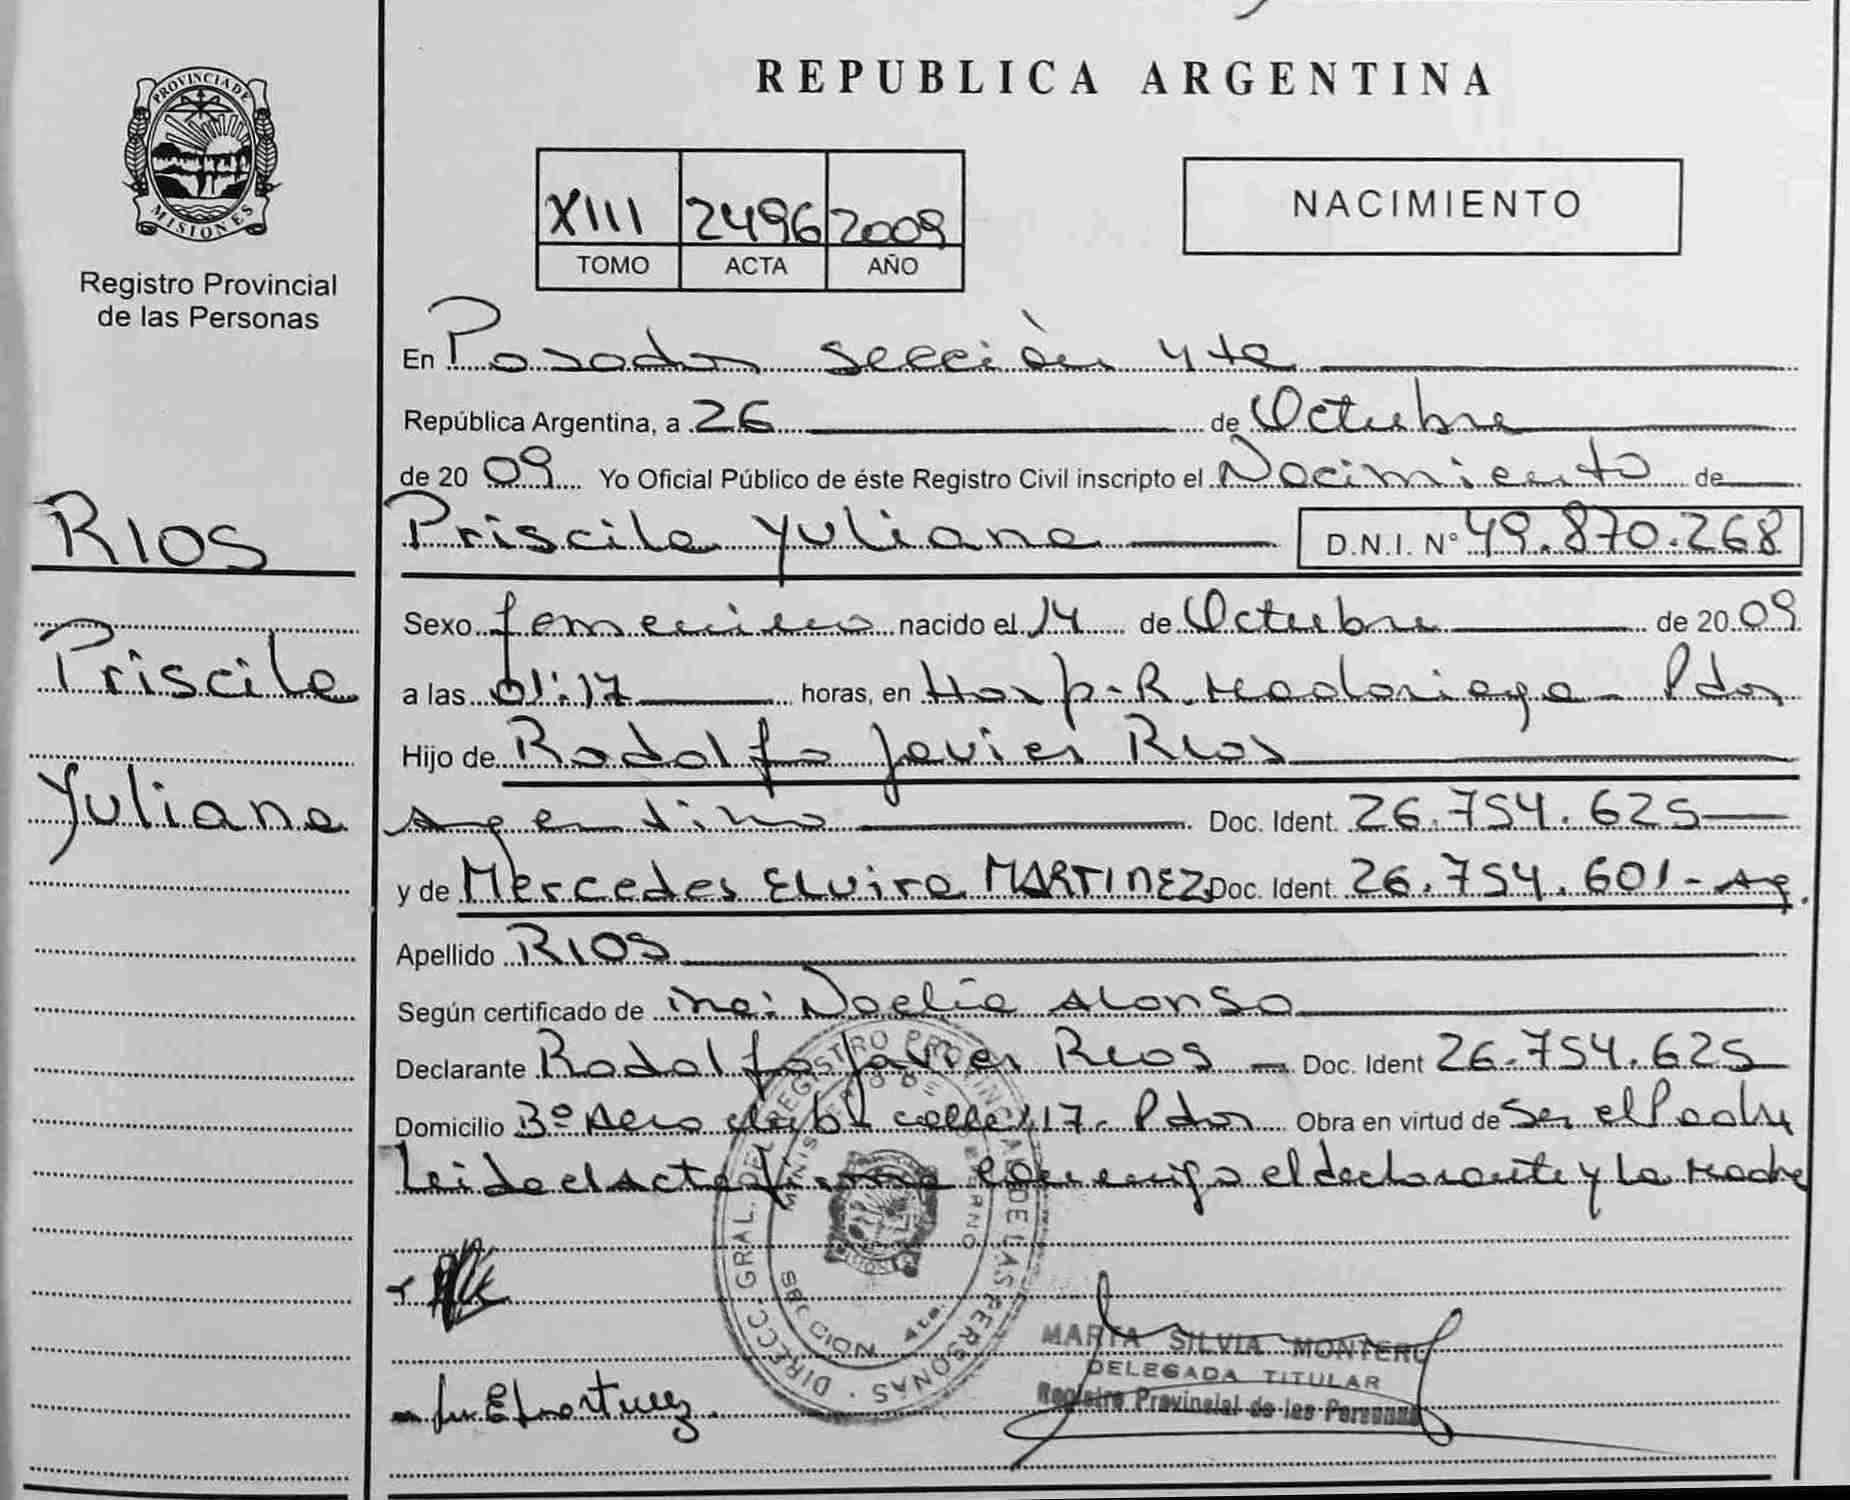 PROVINCIA DE
MISIONES
Registro Provincial
de las Personas
RIOS
Priscila
Yuliana
REPUBLICA ARGENTINA
XIII 2496 2009
TOMO ACTA AÑO
NACIMIENTO
En Posadas sección 4ta
República Argentina, a 26 de Octubre
de 2009 Yo Oficial Público de éste Registro Civil inscripto el Nacimiento de
Priscila Yuliana D.N.I. N° 49.870.268
Sexo femenino nacido el 14 de Octubre de 2009
a las 01:17 horas, en Hosp. R. Madariaga - Pdas
Hijo de Rodolfo Javier Rios
Argentino Doc. Ident. 26.754.625
y de Mercedes Elvira MARTINEZ Doc. Ident. 26.754.601 - Arg.
Apellido RIOS
Según certificado de Noelia Alonso
Declarante Rodolfo Javier Rios Doc. Ident 26.754.625
Domicilio calle 117 - Pdas Obra en virtud de Ser el Padre
Leida el Acta firma conmigo el declarante y la Madre
DIRECC. GRAL. DEL REGISTRO PROVINCIAL DE LAS PERSONAS
MINISTERIO DE GOBIERNO
SECCION 4ta.
MARTA SILVIA MONTERO
DELEGADA TITULAR
Registro Provincial de las Personas